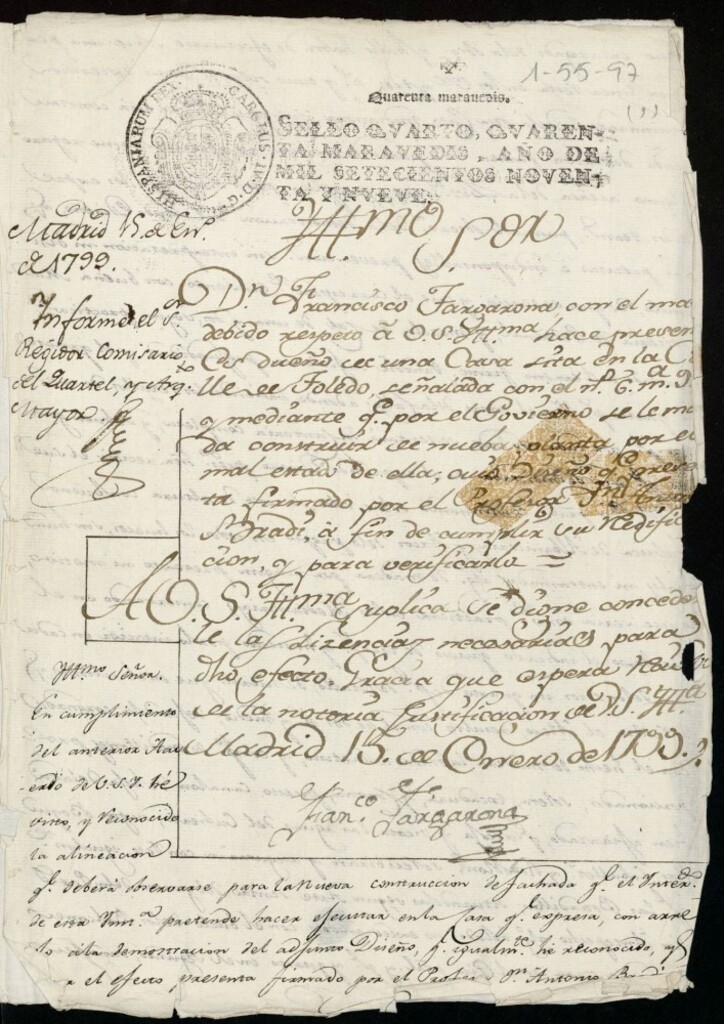 1-55-97
(1)
Quarenta maravedis.
SELLO QVARTO, QVAREN-
TA MARAVEDIS, AÑO DE
MIL SETECIENTOS NOVEN-
TA Y NVEVE.
CAROLUS IV D G HISPANIARUM REX
Yllmo Sor
Madrid 15 de Enº.
de 1799.
Informe el Sr.
Regidor Comisario
del Quartel, y Arqto
Mayor
Dn. Francisco Fargarona, con el ma
debido respeto á V.S. Yllma hace presen
Es dueño de una Casa sita en la Ca
lle de Toledo, señalada con el nº. 6. ma. 9
y mediante q. por el Govierno se le ma
da construir de nueba planta por el
mal estado de ella, cuio Diseño qe. presen
ta firmado por el Profesor Dn. Anto
Bradi, á fin de cumplir su Redifica
cion, y para verificarlo =
A V. S. Yllma Suplica se digne concede
le las Lizencias necesarias para
dho efecto. Gracia que espera
de la notoria Justificacion de V.S. Yllma
Madrid 15. de Enero de 1799.
Franco. Fargarona
Yllmo. Señor.
En cumplimiento
del anterior Acu
erdo de V.S.Y. hé
visto, y reconocido
la alineacion
q. deberá observarse para la nueva construccion de fachada q. el Interdo.
de esta Ynsta. pretende hacer ejecutar en la Casa q. expresa, con arre
lo á la demostracion del adjunto Diseño, q. igualmte. hé reconocido, y
el efecto presenta firmado por el Profes. Dn. Antonio